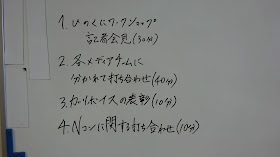 1. ひのくにワークショップ
記者会見(30分)
2. 各メディアチームに
分かれて打ち合わせ(40分)
3. ガリボイスの表彰(10分)
4 Nコンに関する打ち合わせ(10分)